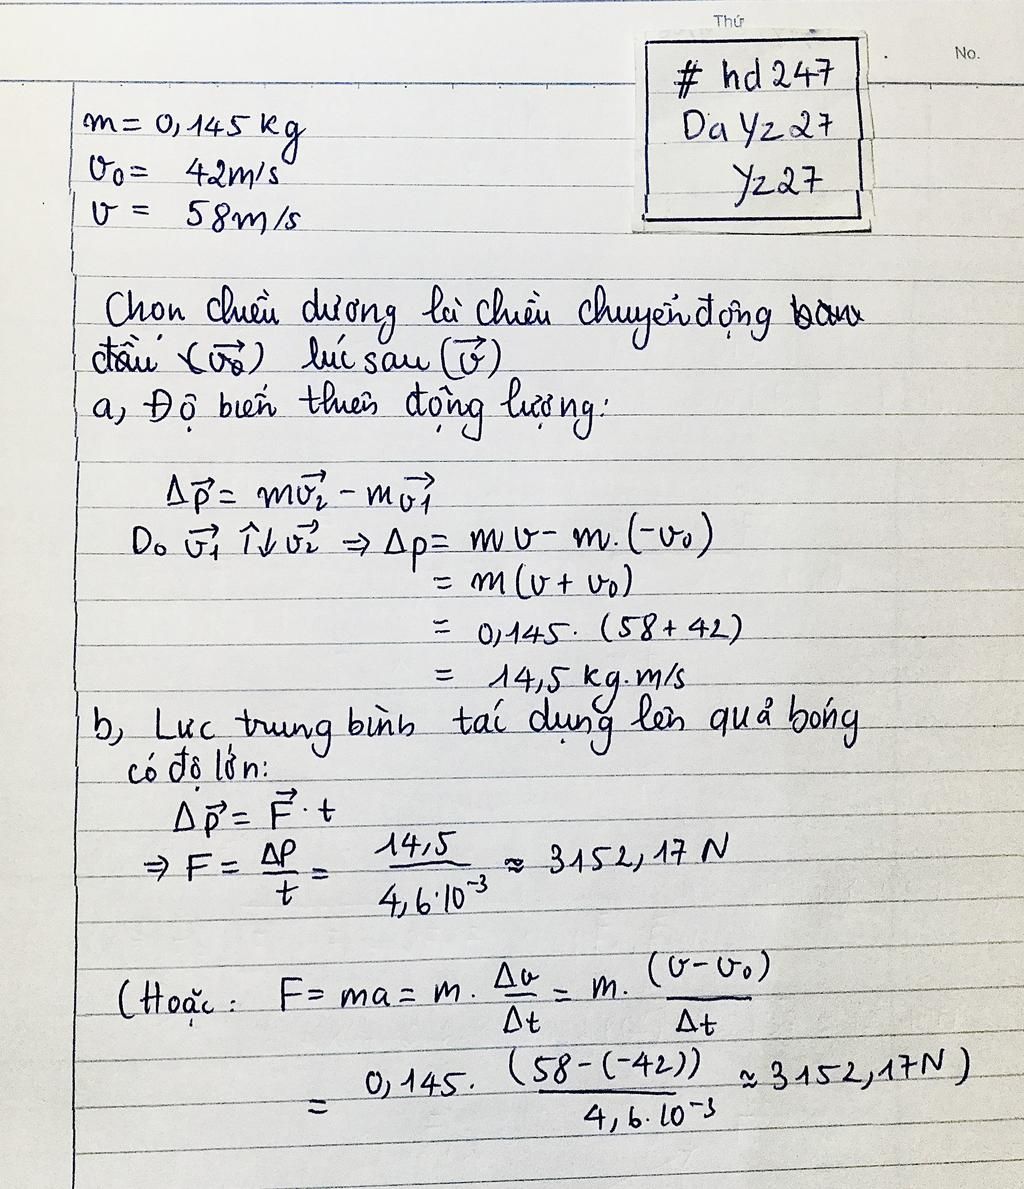 Thứ
No.
# hd247
Da Yz27
Yz27
m = 0,145 kg
v₀ = 42m/s
v = 58m/s
Chọn chiều dương là chiều chuyển động
đầu (v₀⃗) lúc sau (v⃗)
a, Độ biến thiên động lượng:
Δp⃗ = mv₂⃗ - mv₁⃗
Do v₁⃗ ↑↓ v₂⃗ ⇒ Δp = mv - m.(-v₀)
= m(v + v₀)
= 0,145. (58 + 42)
= 14,5 kg.m/s
b, Lực trung bình tác dụng lên quả bóng
có độ lớn:
Δp⃗ = F⃗ . t
⇒ F = ΔP/t = 14,5/4,6.10⁻³ ≈ 3152,17 N
(Hoặc: F = ma = m. Δv/Δt = m. (v-v₀)/Δt
= 0,145. (58-(-42))/4,6.10⁻³ ≈ 3152,17N)